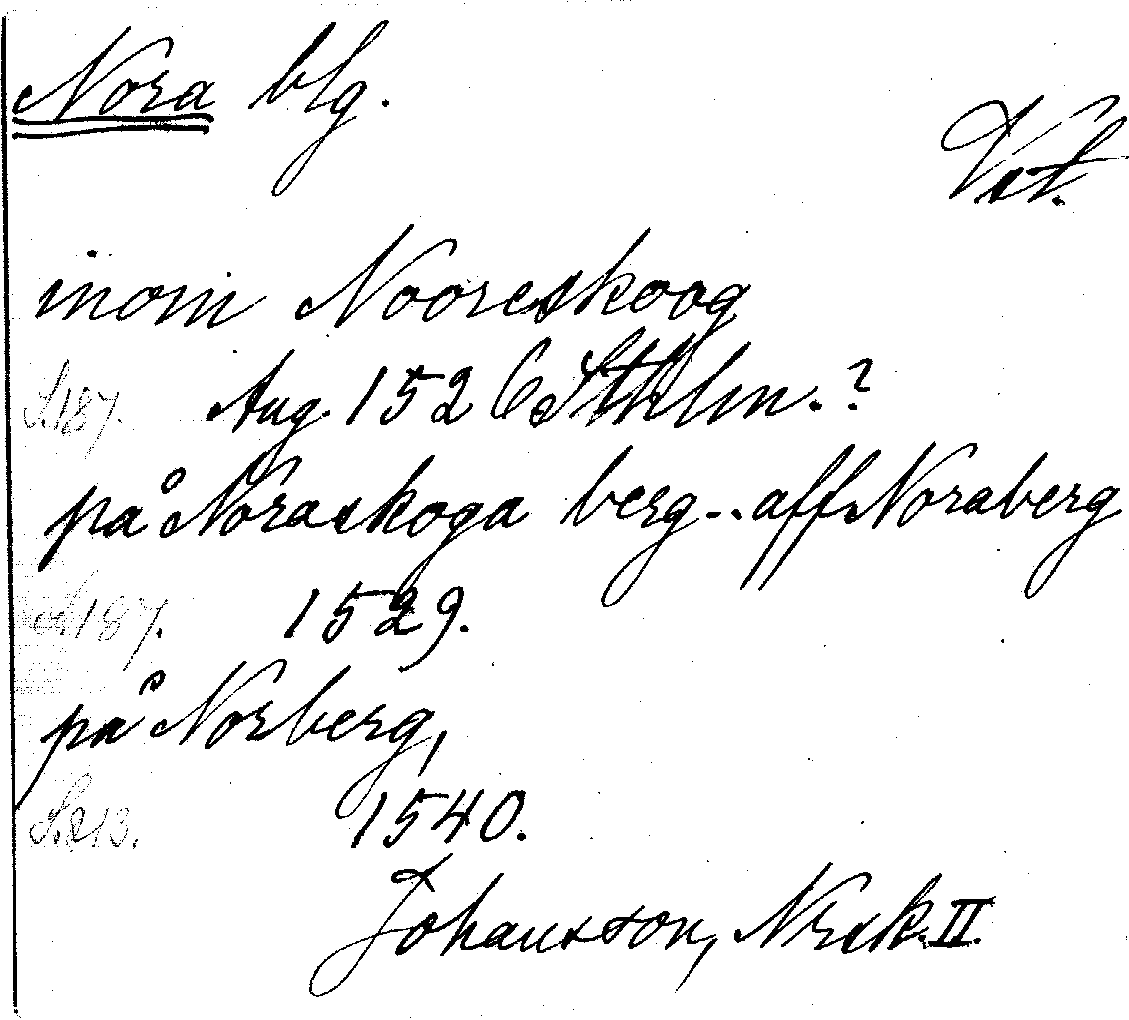 Nora blg.
Vst.
inom Nooreskoog
S. 187. Aug. 1526 Sthlm. ?
på Noraskoga berg - . aff Noraberg
S. 187. 1529.
på Norberg,
S. 213. 1540.
Johansson, Nrsk. II.